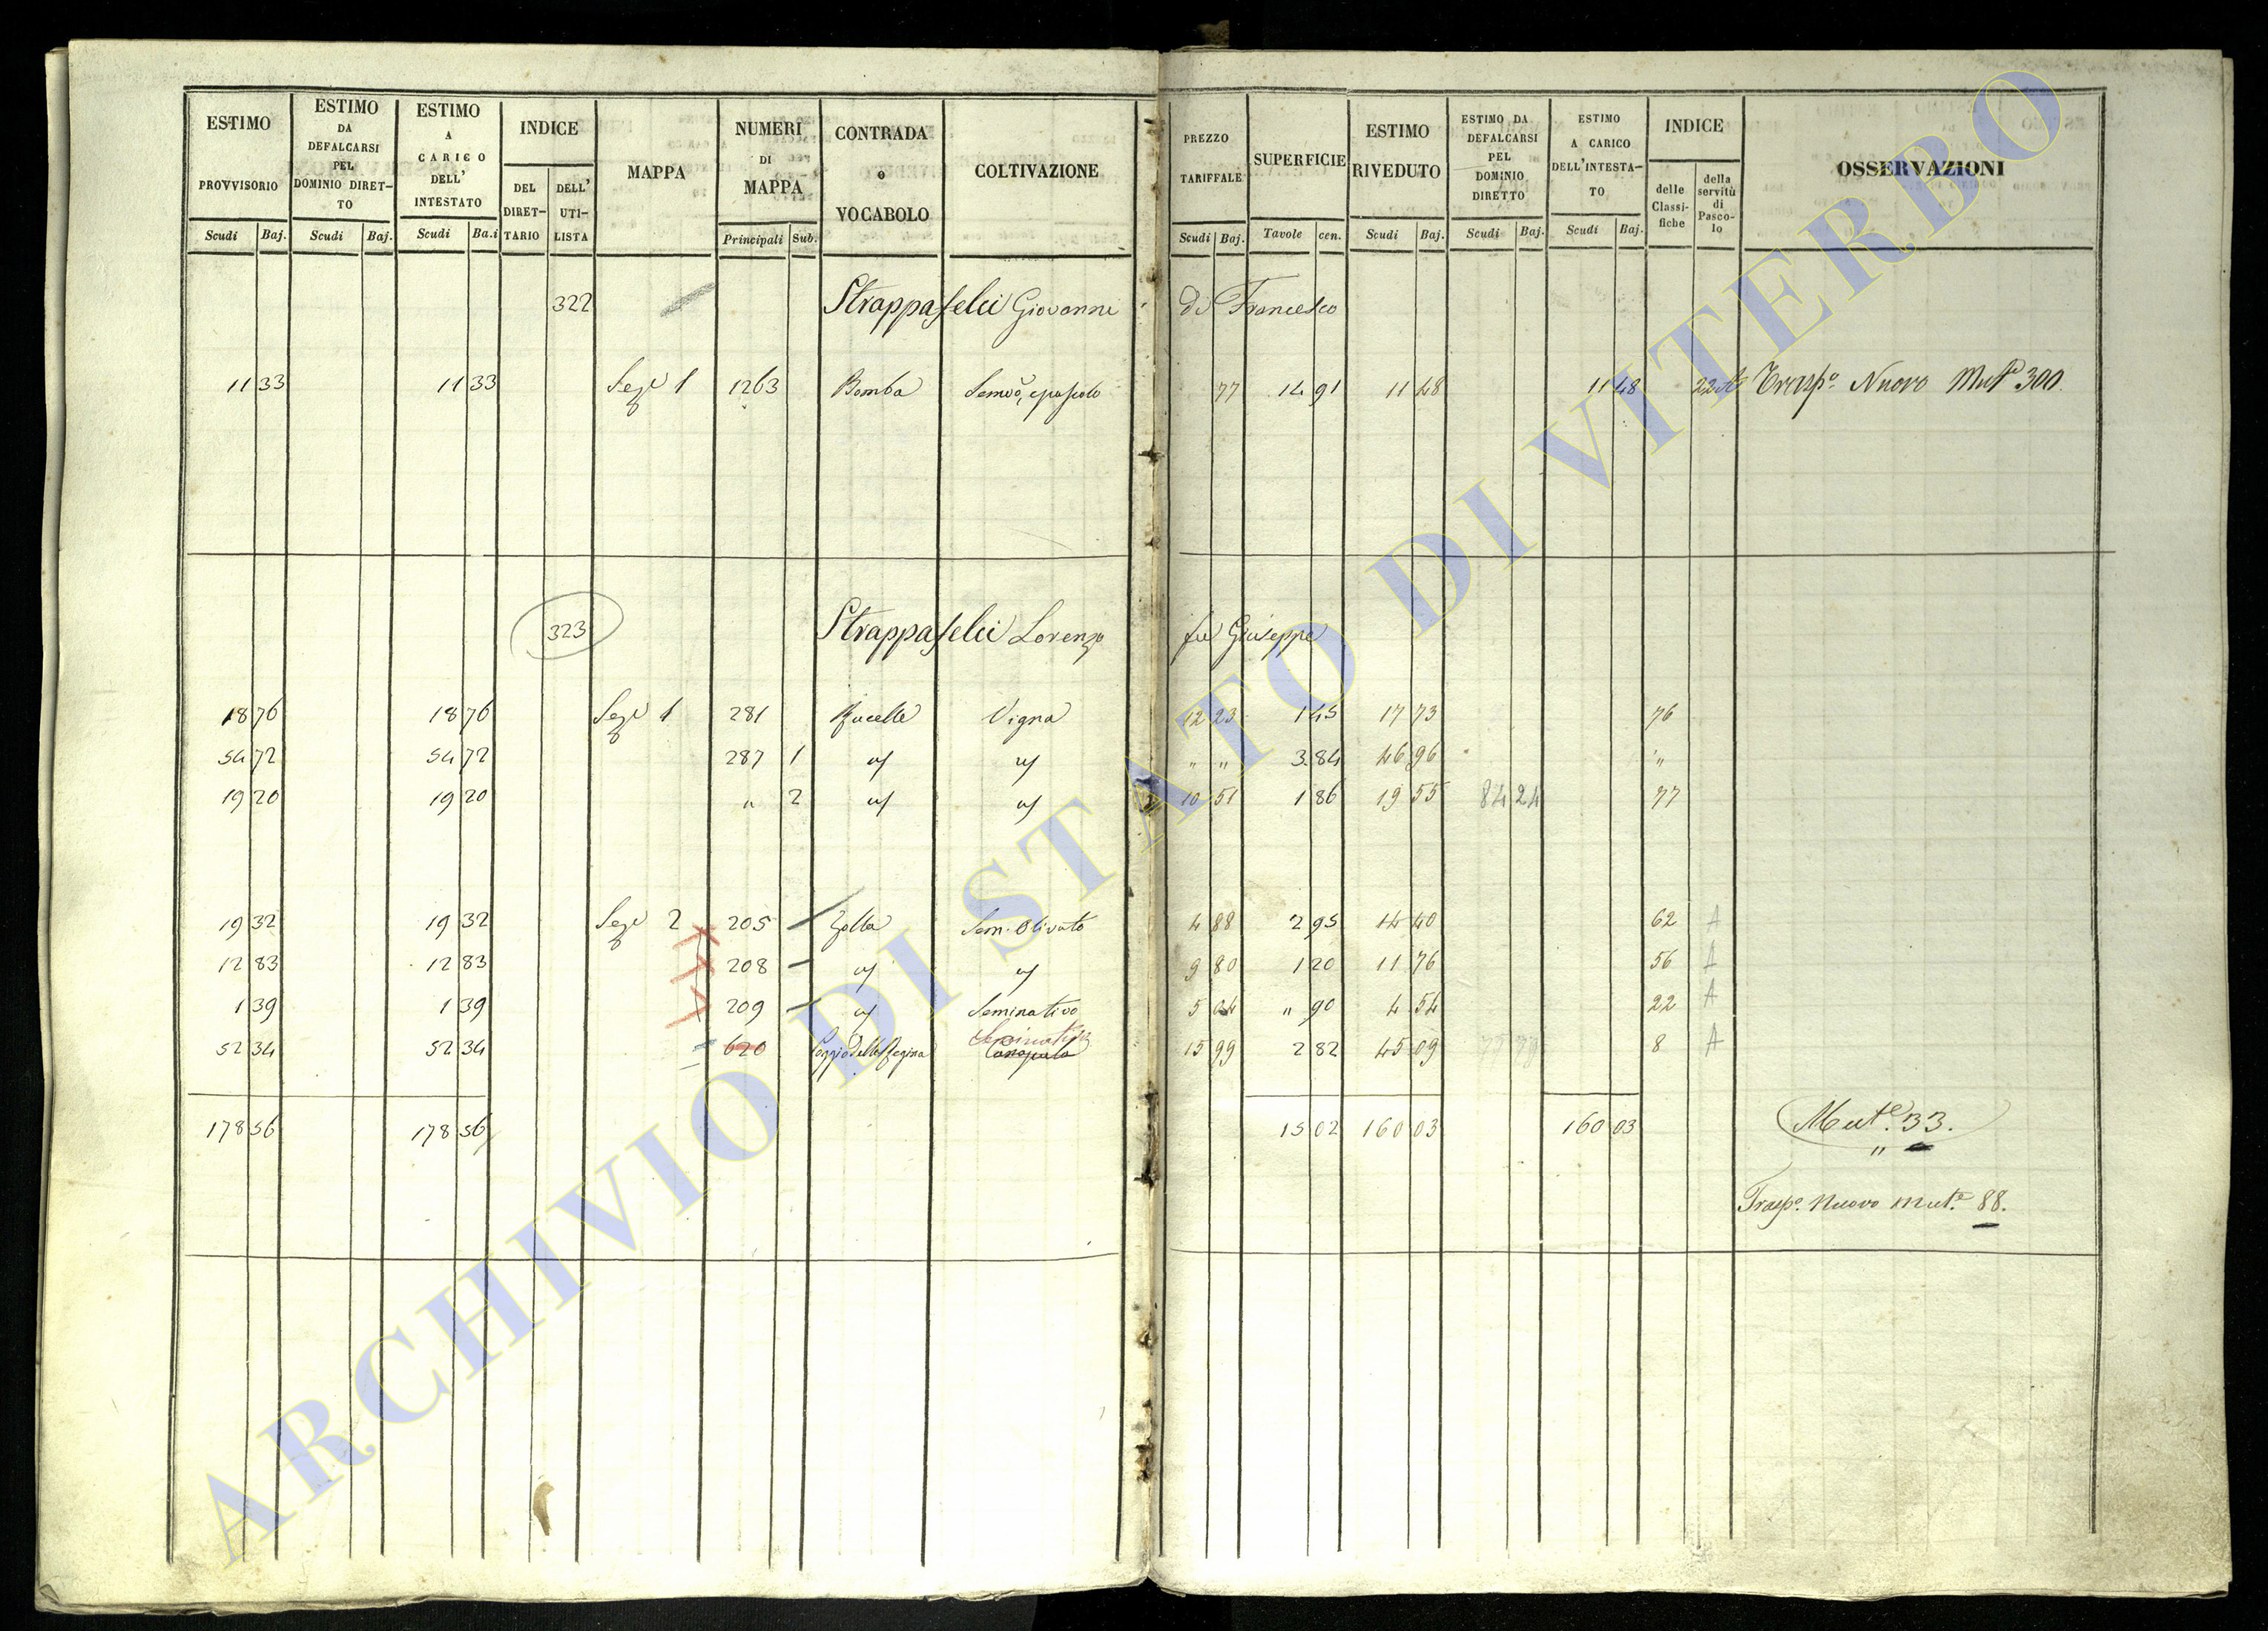 ESTIMO PROVVISORIO Scudi Baj.
ESTIMO DA DEFALCARSI PEL DOMINIO DIRETTO Scudi Baj.
ESTIMO A CARICO DELL' INTESTATO Scudi Ba.i
INDICE DEL DIRETTARIO DELL' UTILISTA
MAPPA
NUMERI DI MAPPA Principali Sub.
CONTRADA o VOCABOLO
COLTIVAZIONE
PREZZO TARIFFALE Scudi Baj.
SUPERFICIE Tavole cen.
ESTIMO RIVEDUTO Scudi Baj.
ESTIMO DA DEFALCARSI PEL DOMINIO DIRETTO Scudi Baj.
ESTIMO A CARICO DELL'INTESTATO Scudi Baj.
INDICE delle Classifiche della servitù di Pascolo
OSSERVAZIONI
322 Strappafelci Giovanni di Francesco
11 33 11 33 Seze 1 1263 Bomba 77 14 91 11 48 11 48 22 A Trasp.o Nuovo Mut.e 300.
323 Strappafelci Lorenzo fu Giuseppe
18 76 18 76 Seze 1 281 Vigna 12 23 1 45 17 73 76
54 72 54 72 287 1 " " 3 84 46 96 "
19 20 19 20 " 2 10 51 1 86 19 55 84 24 77
19 32 19 32 Seze 2 205 Zolla Sem. Olivato 4 88 2 95 14 40 62 A
12 83 12 83 208 9 80 1 20 11 76 56 A
1 39 1 39 209 Seminativo 5 04 " 90 4 54 22 A
52 34 52 34 620 Poggio della Regina Seminativo Canapula 15 99 2 82 45 09 8 A
178 56 178 56 15 02 160 03 160 03 Mut.e 33.
"
Trasp.o Nuovo Mut.e 88.
ARCHIVIO DI STATO DI VITERBO